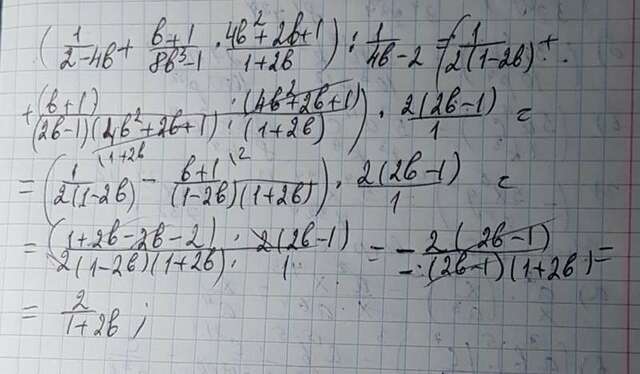 ( 1/(2-4b) + (b+1)/(8b³-1) · (4b²+2b+1)/(1+2b) ) : 1/(4b-2) = ( 1/(2(1-2b)) +
+ (b+1)·(4b²+2b+1)/((2b-1)(4b²+2b+1)·(1+2b)) ) · 2(2b-1)/1 =
= ( 1\1+2b/(2(1-2b)) - b+1\2/((1-2b)(1+2b)) ) · 2(2b-1)/1 =
= (1+2b-2b-2)·2(2b-1)/(2(1-2b)(1+2b)·1) = - 2(2b-1)/(-(2b-1)(1+2b)) =
= 2/(1+2b) ;